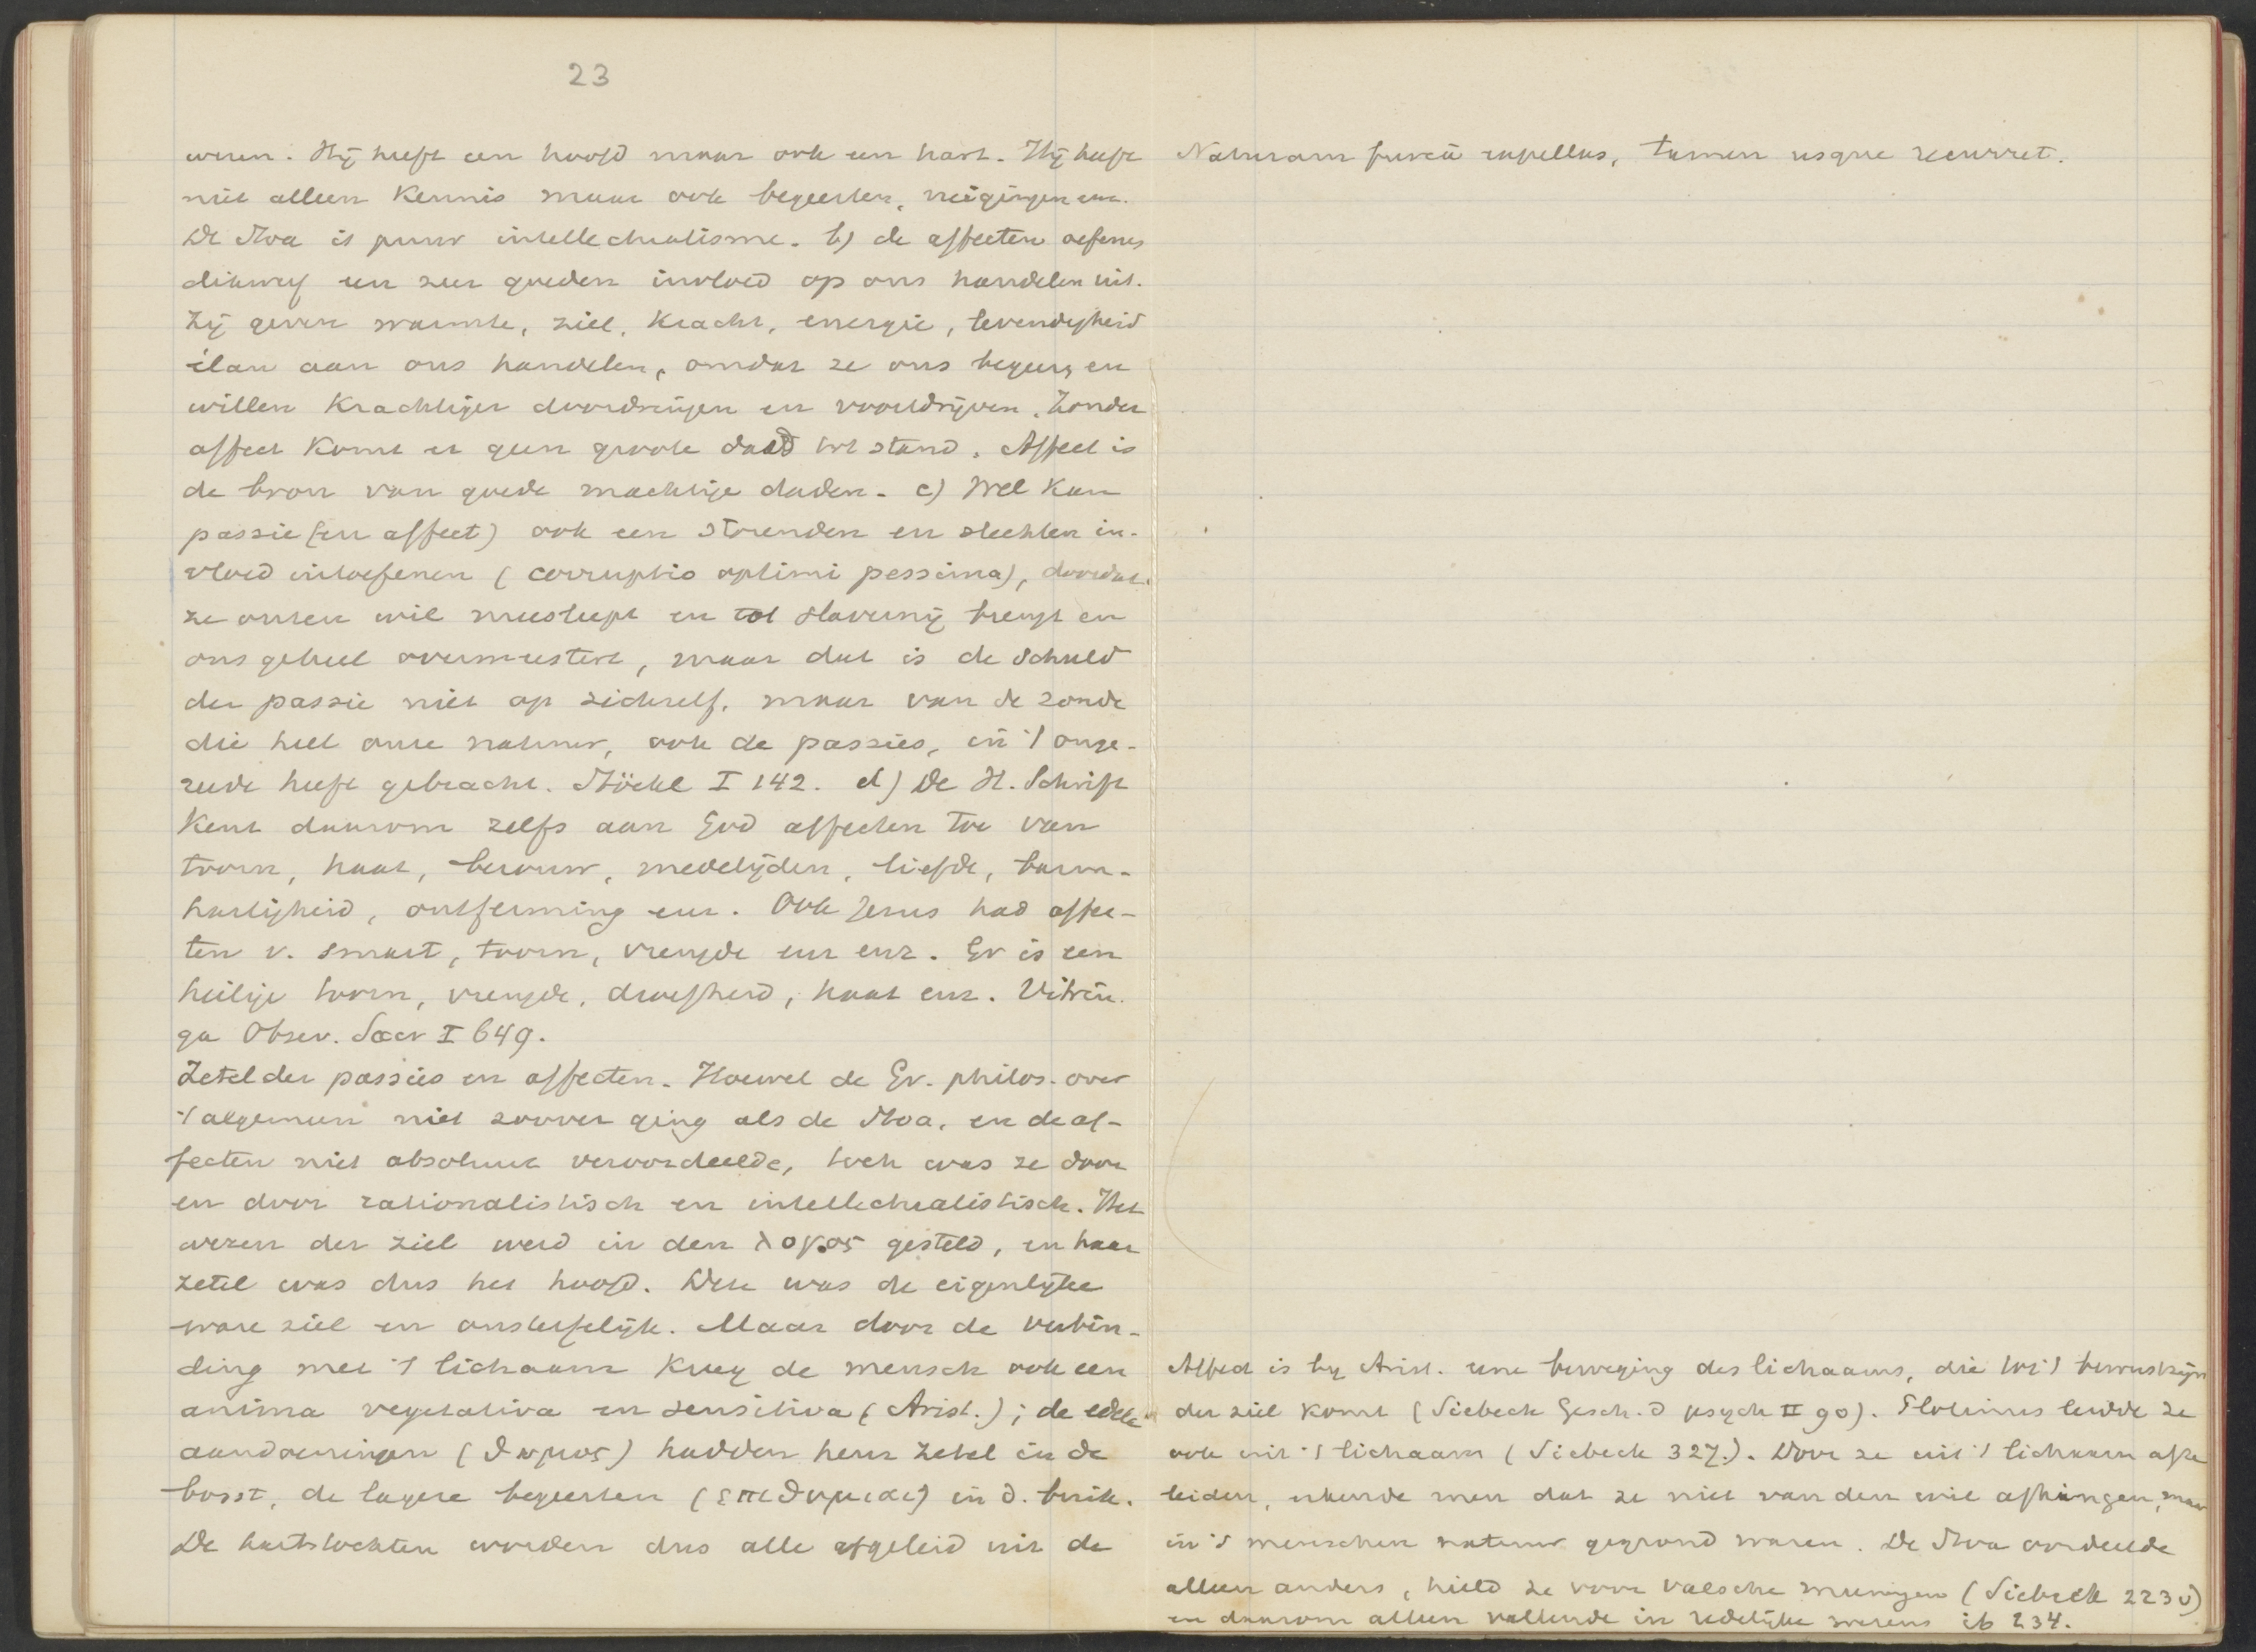 23
wezen. Hij heeft een hoofd maar ook een hart. Hij heeft
niet alleen Kennis maar ook begeerten, neigingen enz.
De Stoa is puur intellectualisme. b) de affecten oefenen
dikwerf een zeer goeden invloed op ons handelen uit.
Zij geven warmte, ziel, Kracht, energie, levendigheid
élan aan ons handelen, omdat ze ons begeer. en
willen Krachtiger doordringen en voortdrijven. Zonder
affect Komt er geen groote daad tot stand. Affect is
de bron van goede machtige daden. c) Wel Kan
passie (en affect) ook een storenden en slechten in-
vloed uitoefenen (corruptio optimi pessima), doordat
ze onzen wil meesleept en tot slavernij brengt en
ons geheel overmeestert, maar dat is de schuld
der passie niet op zichzelf, maar van de zonde
die heel onze natuur, ook de passies, in 't onge-
reede heeft gebracht. Stöckl I 142. d) De H. Schrift
Kent daarom zelfs aan God affecten toe van
toorn, haat, berouw, medelijden, liefde, barm-
hartigheid, ontferming enz. Ook Jezus had affec-
ten v. smart, toorn, vreugde enz enz. Er is een
heilige toorn, vreugde, droefheid, haat enz. Vitrin-
ga Observ. Sacr I 649.
Zetel der passies en affecten. Hoewel de Gr. philos. over
't algemeen niet zoover ging als de Stoa, en de af-
fecten niet absoluut veroordeelde, toch was ze door
en door rationalistisch en intellectualistisch. Het
wezen der ziel werd in den λογος gesteld, en haar
zetel was dus het hoofd. Deze was de eigenlijke
ware ziel en onsterfelijk. Maar door de verbin-
ding met 't lichaam Kreeg de mensch ook een
anima vegetativa en sensitiva (Arist.); de edele
aandoeningen (θυμος) hadden hun zetel in de
borst, de lagere begeerten (επιθυμιαι) in d. buik.
De hartstochten worden dus alle afgeleid uit de
Naturam furcâ expellas, tamen usque recurret.
Affect is by Arist. eene beweging des lichaams, die tot 't bewustzijn
der ziel komt (Siebeck Gesch. d psych II 90). Plotinus leidde ze
ook uit 't lichaam (Siebeck 327.). Door ze uit 't lichaam af te
leiden, erkende men dat ze niet van den wil afhingen, maar
in 's menschen natuur gegrond waren. De Stoa oordeelde
alleen anders, hield ze voor valsche meeningen (Siebeck 223 v)
en daarom alleen vallende in redelijke wezens ib 234.